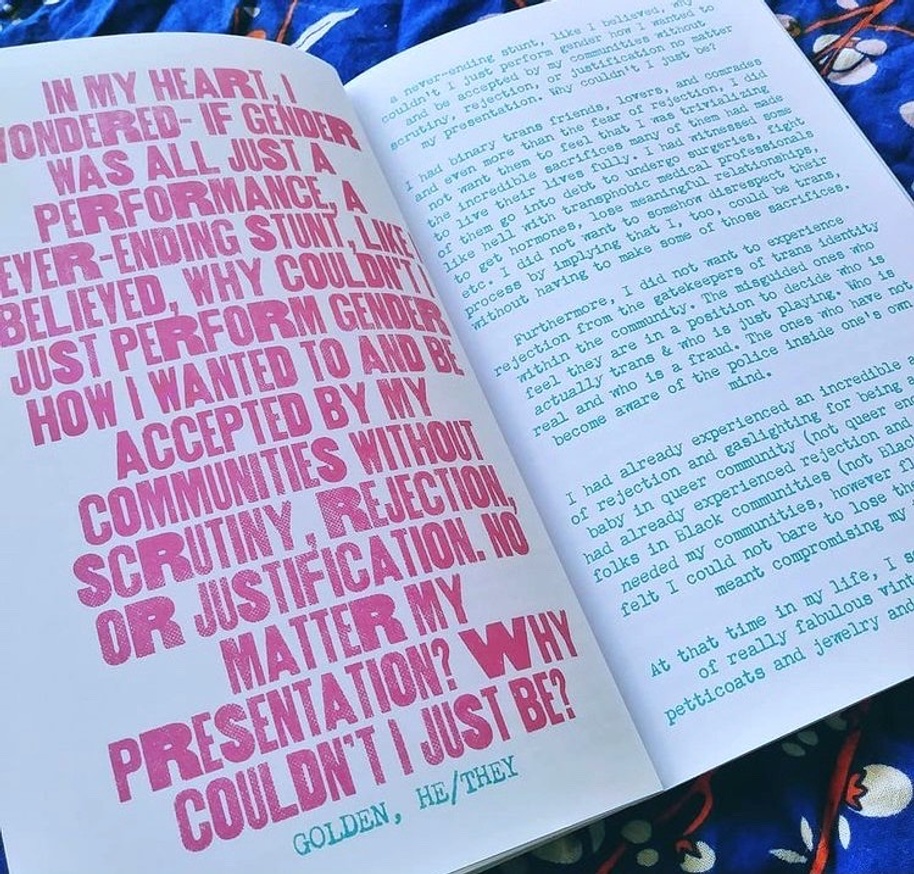 IN MY HEART, I
WONDERED- IF GENDER
WAS ALL JUST A
PERFORMANCE, A
EVER-ENDING STUNT, LIKE
BELIEVED, WHY COULDN'T I
JUST PERFORM GENDER
HOW I WANTED TO AND BE
ACCEPTED BY MY
COMMUNITIES WITHOUT
SCRUTINY, REJECTION,
OR JUSTIFICATION. NO
MATTER MY
PRESENTATION? WHY
COULDN'T I JUST BE?
GOLDEN, HE/THEY
a never-ending stunt, like I believed, why
couldn't I just perform gender how I wanted to
and be accepted by my communities without
scrutiny, rejection, or justification no matter
my presentation. Why couldn't I just be?
I had binary trans friends, lovers, and comrades
and even more than the fear of rejection, I did
not want them to feel that I was trivializing
the incredible sacrifices many of them had made
to live their lives fully. I had witnessed some
of them go into debt to undergo surgeries, fight
like hell with transphobic medical professionals
to get hormones, lose meaningful relationships,
etc. I did not want to somehow disrespect their
process by implying that I, too, could be trans,
without having to make some of those sacrifices.
Furthermore, I did not want to experience
rejection from the gatekeepers of trans identity
within the community. The misguided ones who
feel they are in a position to decide who is
actually trans & who is just playing. Who is
real and who is a fraud. The ones who have not
become aware of the police inside one's own
mind.
I had already experienced an incredible
of rejection and gaslighting for being a
baby in queer community (not queer
had already experienced rejection and
folks in Black communities (not
needed my communities, however
felt I could not bare to lose
meant compromising my
At that time in my life, I
of really fabulous
petticoats and jewelry and